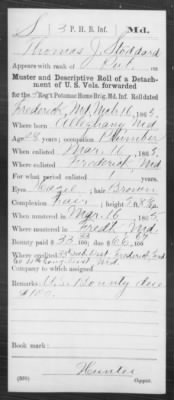 S | 3 | P. H. B. Inf. | Md.
Thomas J. Stoddard
Appears with rank of Pvt. on
Muster and Descriptive Roll of a Detach-
ment of U. S. Vols. forwarded
for the 3" Reg't Potomac Home Brig. Md. Inf. Roll dated
Frederick, Md. Mch 16, 1865.
Where born Alleghany, Md
Age 28 years; occupation Plumber
When enlisted Mar. 16, 1865.
Where enlisted Frederick, Md
For what period enlisted 1 years.
Eyes Hazel; hair Brown
Complexion Fair;
When mustered in Mar. 16, 1865.
Where mustered in Fredk Md
Bounty paid $ 33; due $ 66
Where credited Frederick, Fred
Company to which assigned
Remarks: U.S. Bounty due
$100.
Book mark:
Hunter
Copyist.